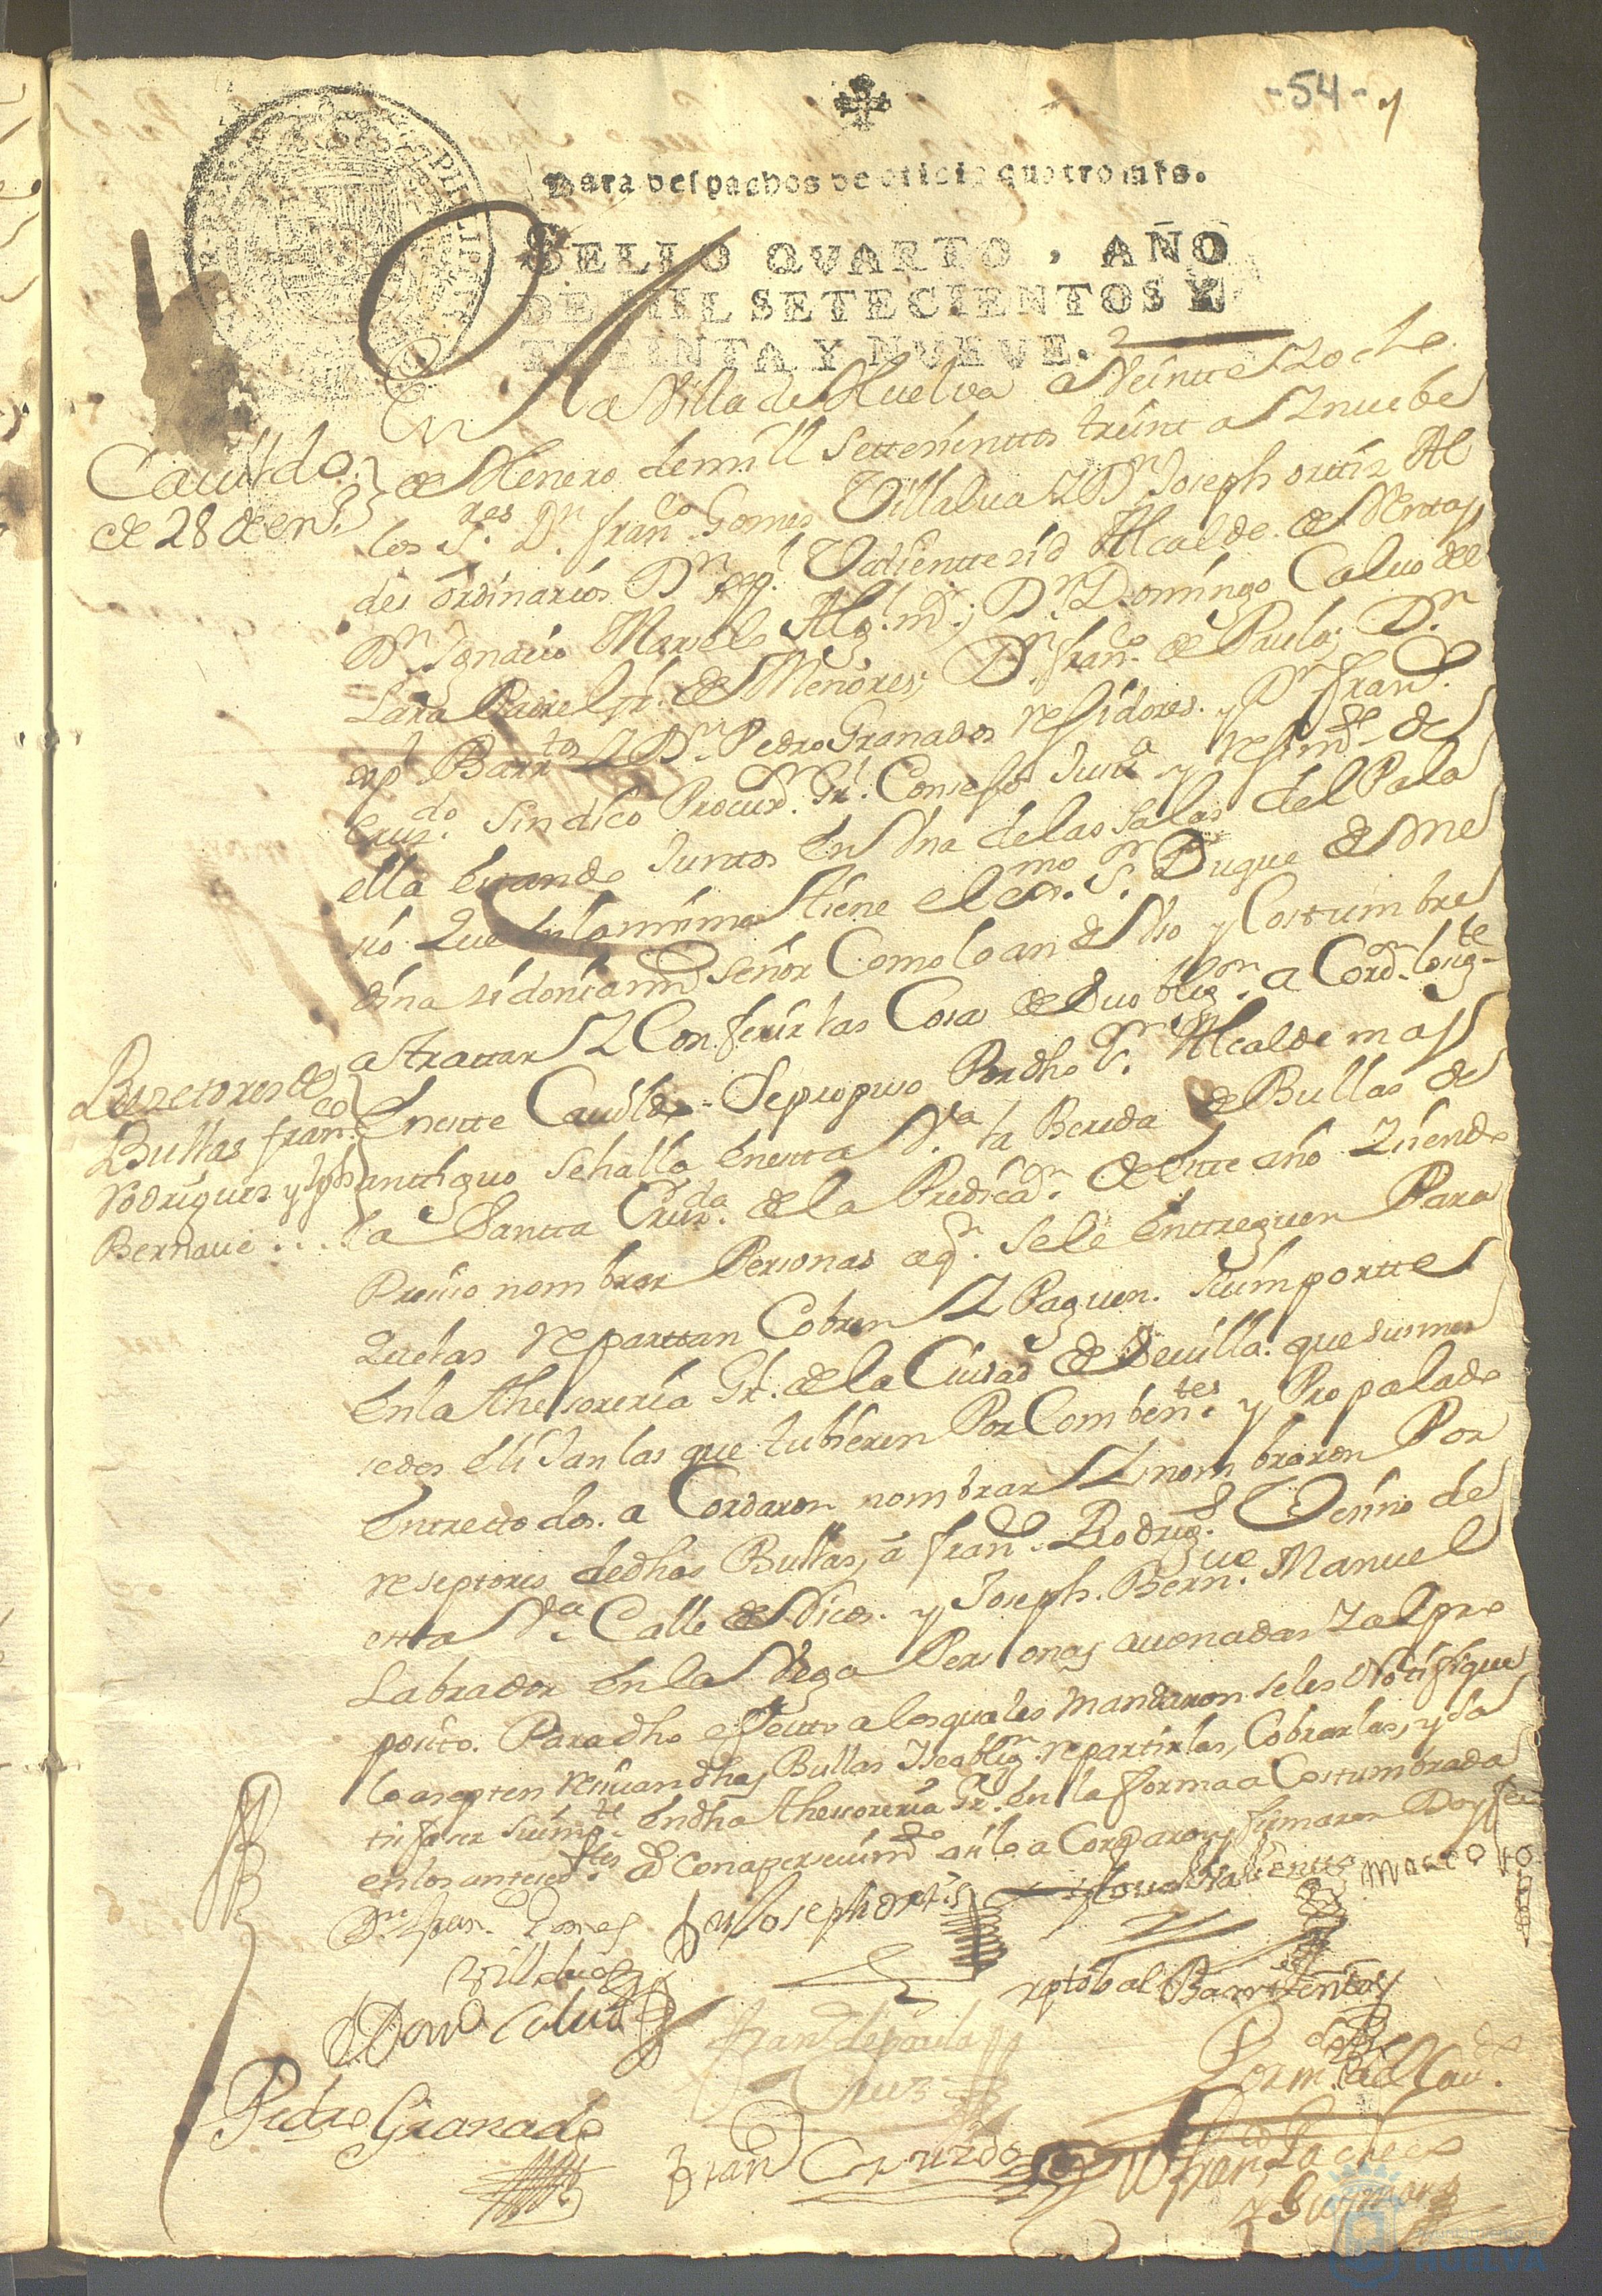 -54-
Para despachos de oficio quatro mrs.
SELLO QVARTO, AÑO
DE MIL SETECIENTOS Y
TREINTA Y NUEVE.
Cauildo
de 28 de en.º
En la Villa de Huelva a Veintte Y ocho
de Henero de mill Settesinttos treintt a Y nuebe
los S.res D.n fran.co Gomes Villalua Y D.n Joseph ortiz Al
des ordinarios D.n xp.l Valientte Alcalde de
D.n Ignacio Alg.l m.r; D.n Domingo Caluo de
Lara Padre Gl. de Menores, D.n fran.co de Paula, D.n
xp.l Barr.tos Y D.n Pedro Granados residores. y D.n fran.co
Cruz.do Sindico Procur.r Gl. Consejo Just.a y regim.to de
ella estando Juntos En Vna de las Salas del Pala
sio Que en la misma tiene el ex.mo S.or Duque de Me
dina sidonia mi Señor Como lo an de Vso y Costumbre
a trattar Y Conferir las Cosas de Su oblig.on a Cord.on lo sig.te
Reseptores de
Bullas fran.co
Rodrigues y Jph
Bernaue ...
En este Cauildo Se propuso Por dho S.or Alcalde mas
anttiguo Se halla En esta V.a la Bereda de Bullas de
la Santta Cruz.da de la Predica.on de este año Y siendo
Presiso nombrar Personas a q.n Se le Enttreguen Para
Que las reparttan Cobren Y Paguen Su importte
En la thesoreria Gl. de la Ciudad de Seuilla. que sus mer
sedes elijan las que tubieren Por Comben.tes y Propalado
Entre todos a Cordaron nombrar Y nombraron Por
reseptores de dhas Bullas, a fran.co Rodrig.s Vesino de
esta V.a Calle de y Joseph. Bern.ue Manuel
Labrador En la Vega Personas auonadas Y al pro
posito Para dho efecto a los quales Mandaron se les Notifique
lo asepten resiuan dhas Bullas Y se oblig.n repartirlas, Cobrarlas, y sa
tisfaser Su imp.te En dha thesoreria Gl. En la forma a Costumbrada
en los anteced.tes con apersiuim.to asi lo a Cordaron y firmaron Doy fee
D.n Fran.co Gomes
Villalua
D.n Joseph ortis
Xptobal Valientte
D.n Dom.o Caluo
Fran.co de paula
Cruz
xptobal Barrientos
Por m.do del Cau.do
Pedro Granado
Fran.co Cruzado
Fran.co Pacheco
y Guzman
Ayuntamiento de
HUELVA